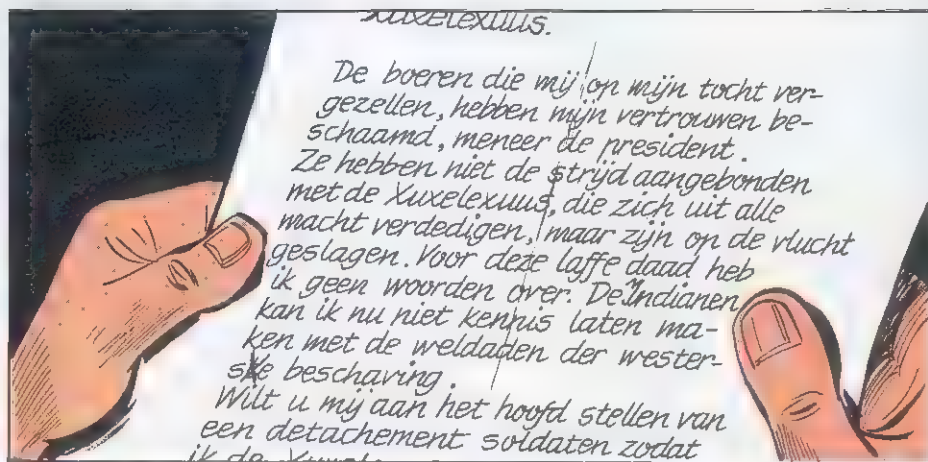 Xuxelexuus.
De boeren die mij op mijn tocht ver-
gezellen, hebben mijn vertrouwen be-
schaamd, meneer de president.
Ze hebben niet de strijd aangebonden
met de Xuxelexuus, die zich uit alle
macht verdedigen, maar zijn op de vlucht
geslagen. Voor deze laffe daad heb
ik geen woorden over. De Indianen
kan ik nu niet kennis laten ma-
ken met de weldaden der wester-
ske beschaving.
Wilt u mij aan het hoofd stellen van
een detachement soldaten zodat
ik de